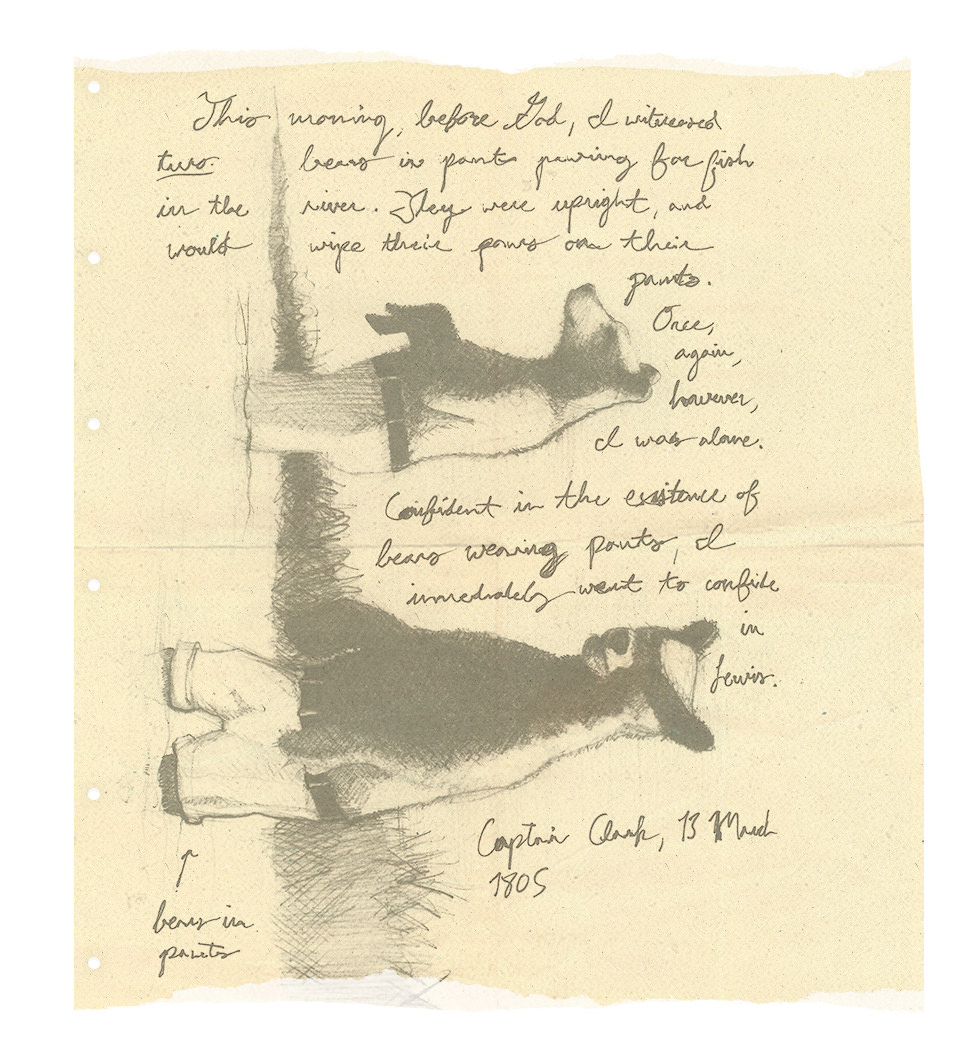 This morning, before God, I witnessed
two bears in pants pawing for fish
in the river. They were upright, and
would wipe their paws on their
pants.
Once,
again,
however,
I was alone.
Confident in the existence of
bears wearing pants, I
immediately went to confide
in
Lewis.
Captain Clark, 13 March
1805
bears in
pants